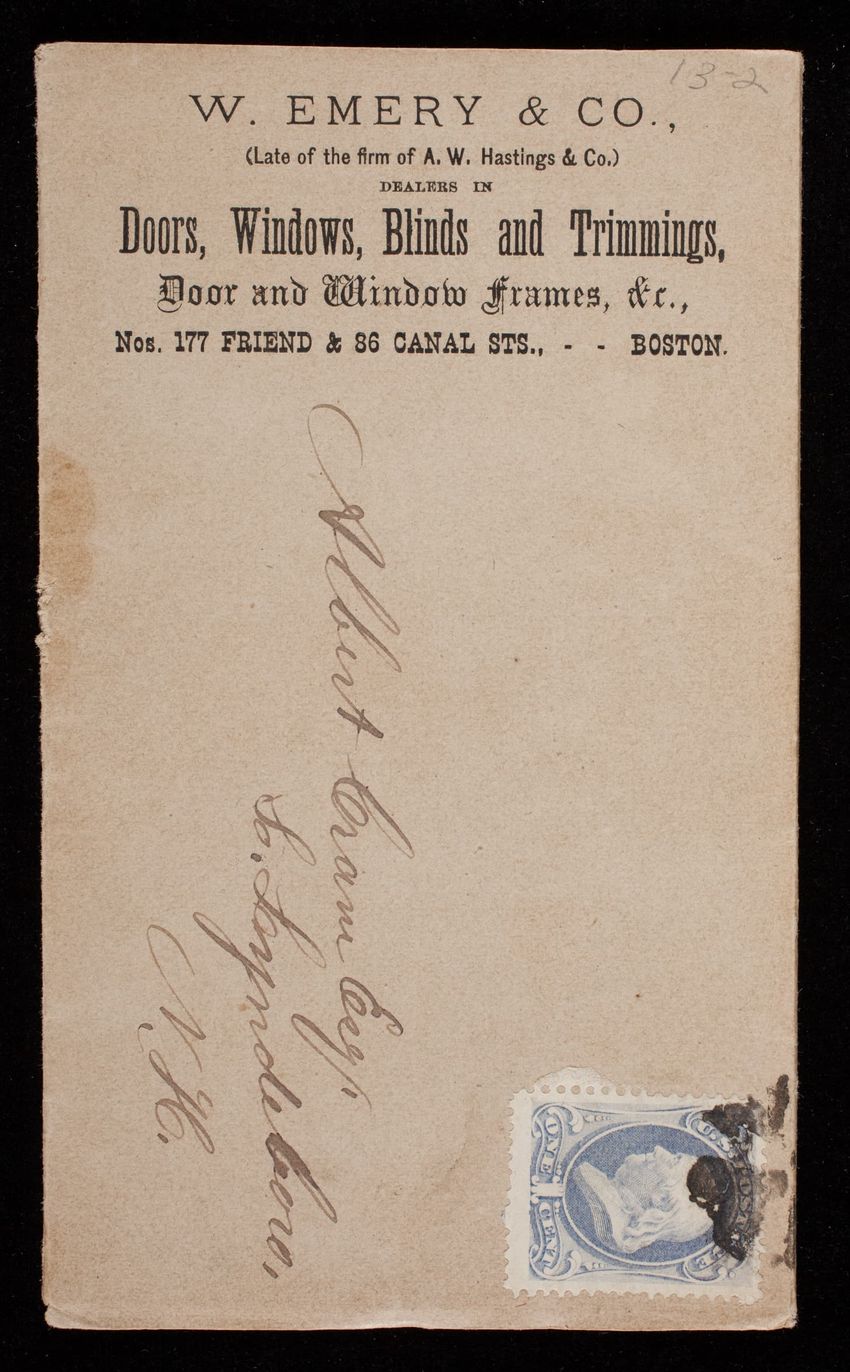 13-2
W. EMERY & CO.,
(Late of the firm of A. W. Hastings & Co.)
DEALERS IN
Doors, Windows, Blinds and Trimmings,
Door and Window Frames, &c.,
Nos. 177 FRIEND & 86 CANAL STS., - - BOSTON.
Albert Cram Esq.
So. Lyndeboro,
N.H.
U.S. POSTAGE
ONE CENT